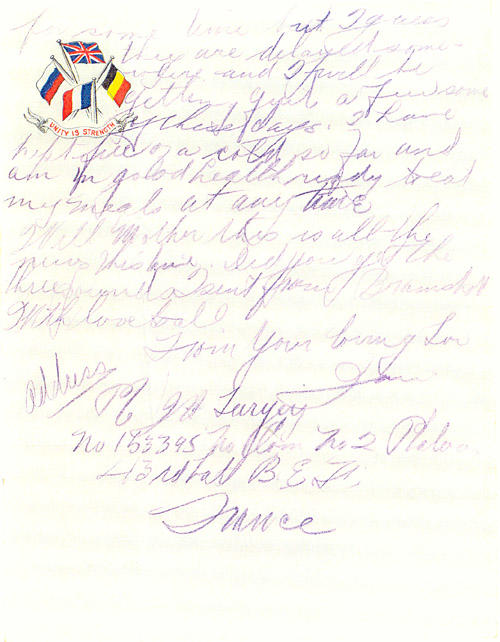 for some time but I guess
they are delayed some-
where and I will be
getting quit a few some
of these days. I have
kept free of a cold so far and
am in good health ready to eat
my meals at any time
Well Mother this is all the
news this time. Did you get the
three I sent from Bramshott
With love to all
From Your loving Son
UNITY IS STRENGTH
Address
Pt J H
No 153395 No Com No 2 Platoo
43rd Batt B. E. F.
France